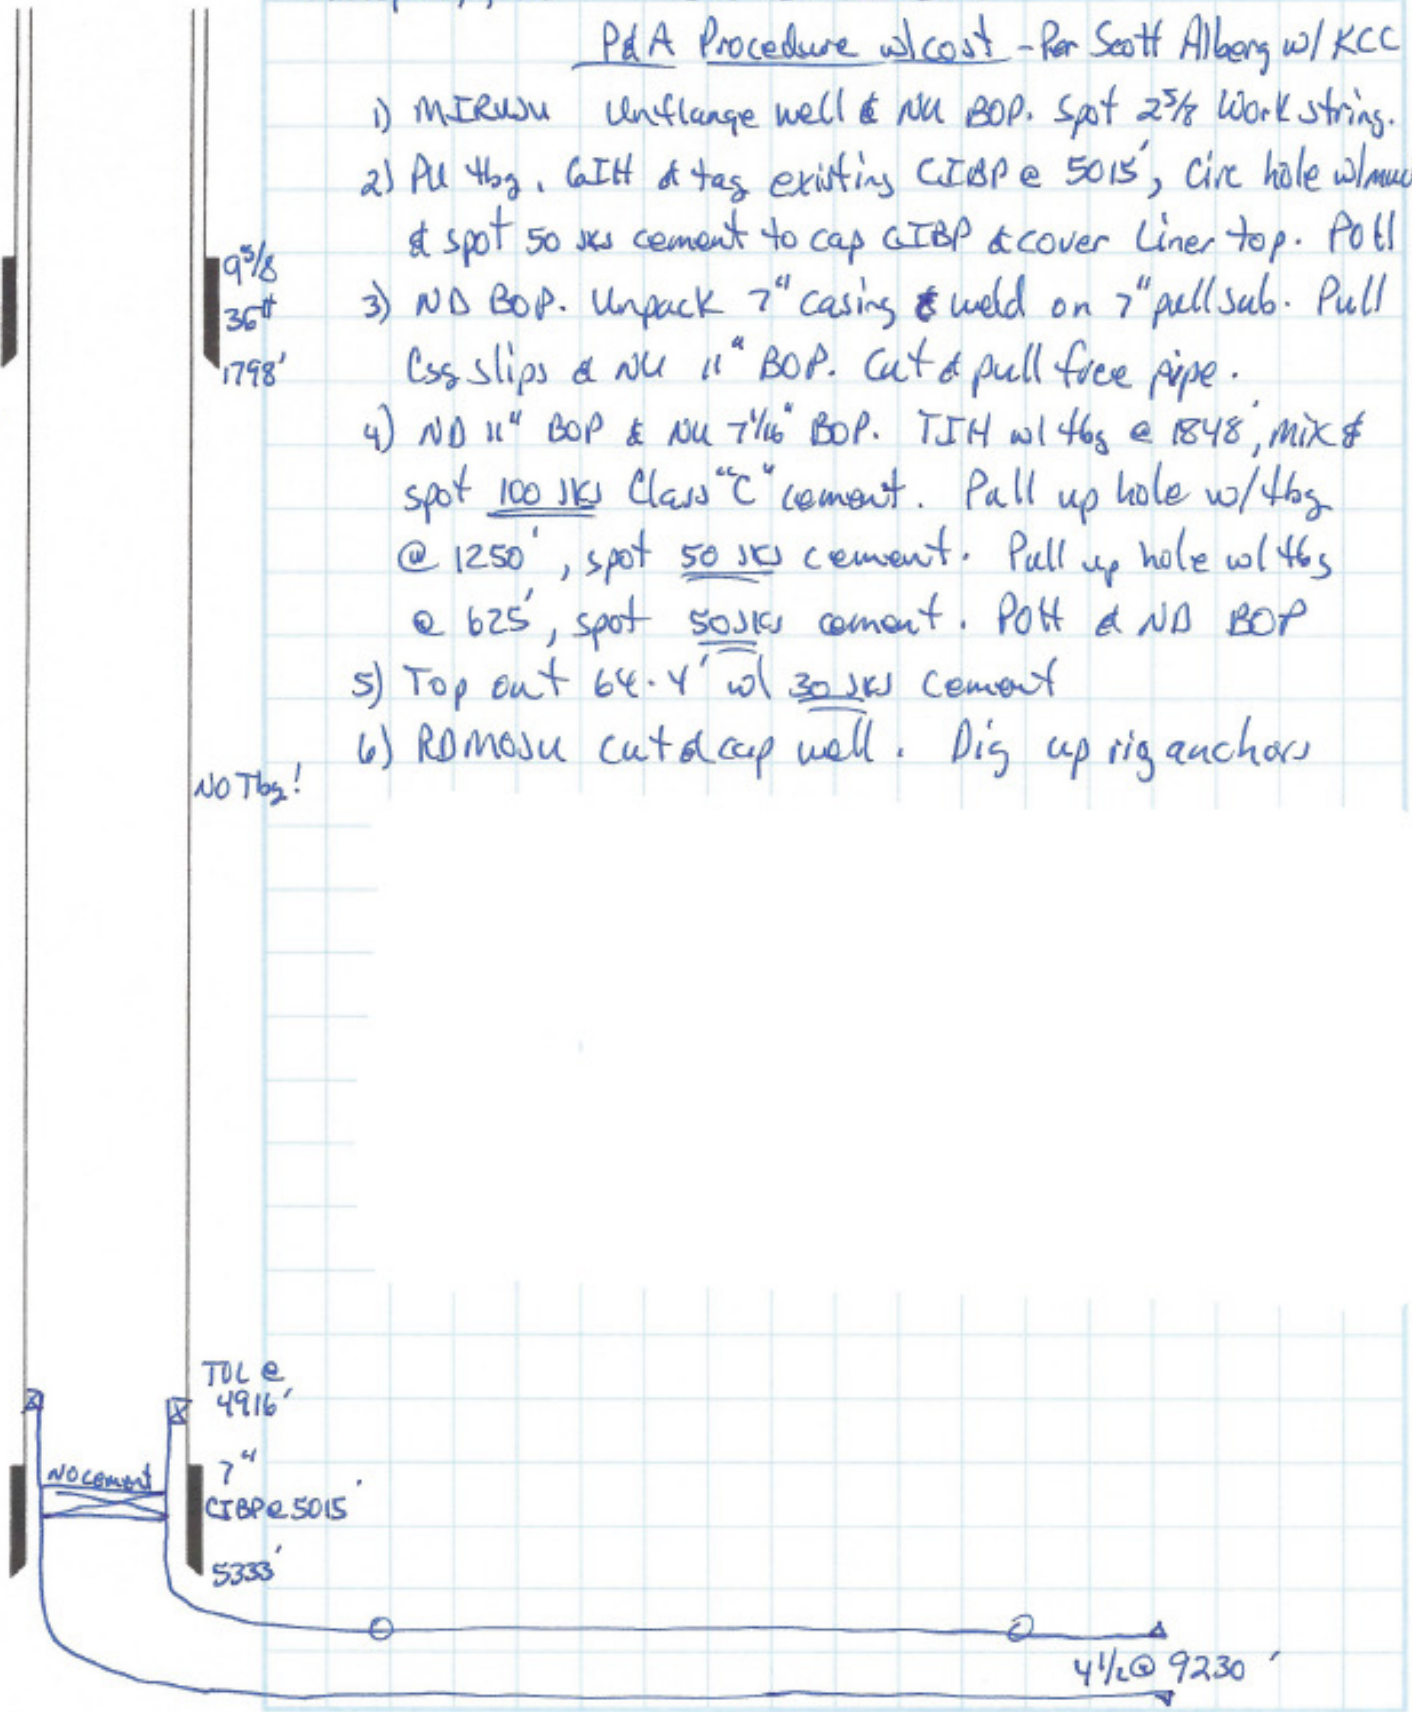 P&A Procedure w/cost - Per Scott Alberg w/ KCC
1) MIRUSU Unflange well & NU BOP. Spot 2 5/8 Work string.
2) PU tbg. GIH & tag existing CIBP @ 5015', Circ hole w/mud
& spot 50 sks cement to cap CIBP & cover Liner top. POH
3) ND BOP. Unpack 7" casing & weld on 7" pull sub. Pull
Csg slips & NU 11" BOP. Cut & pull free pipe.
4) ND 11" BOP & NU 7 1/16" BOP. TIH w/ tbg @ 1848', mix &
spot 100 sks Class "C" cement. Pull up hole w/ tbg
@ 1250', spot 50 sks cement. Pull up hole w/ tbg
@ 625', spot 50 sks cement. POH & ND BOP
5) Top out 64.4' w/ 30 sks cement
6) RDMOSU cut & cap well. Dig up rig anchors
9 5/8
36#
1798'
NO Tbg!
TOL @
4916'
7"
NO cement
CIBP @ 5015'
5333'
4 1/2 @ 9230'